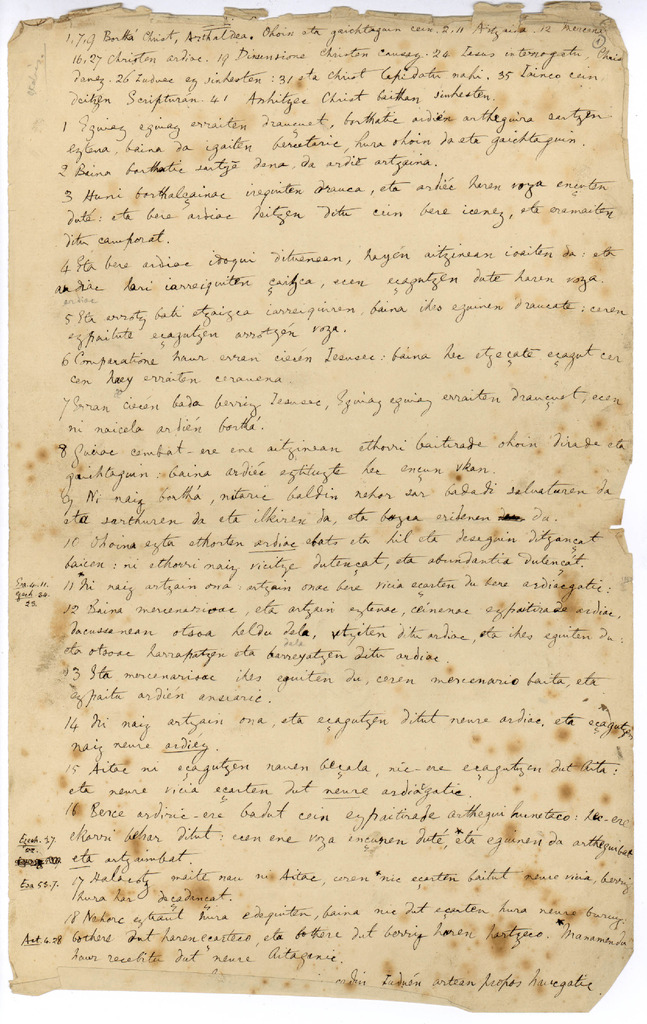 1,7,9 Borthá Christ, Archaldea. Ohoin eta gaichtaguin cein. 2.11 Artzaina. 12 Mercenari
16,27 Christen ardiac. 19 Dissensione Christen causaz. 24 Iesus interrogatu, Christ
denez. 26 Iuduec ez sinhesten: 31 eta Christ lapidatu nahi. 35 Iainco cein
deitzen Scripturán. 41 Anhitzec Christ baithan sinhesten.
1 Eguiaz eguiaz erraiten drauçuet, borthatic ardién artheguira sartzen
eztena, baina da igaiten berçetaric, hura ohoin da eta gaichtaguin.
2 Baina borthatic sartzé dena, da ardié artzaina.
3 Huni borthalçainac irequiten drauca, eta ardiéc haren voza ençuten
duté: eta bere ardiac deitzen ditu cein bere icenez, eta eramaiten
ditu camporat.
4 Eta bere ardiac idoqui dituenean, hayén aitzinean ioaiten da: eta
ardiac hari iarreiquiten çaitzca, ecen eçagutzen dute haren voza.
ardiac
5 Eta errotz bati etzaizca iarreiquiren, baina ihes eguinen draucate: ceren
ezpaitute eçagutzen arrotzén voza.
6 Comparatione haur erran ciecén Iesusec: baina hec etzeçate eçagut cer
cen haey erraiten cerauena.
7 Erran ciecén bada berriz Iesusec, Eguiaz eguiaz erraiten drauçuet, ecen
ni naicela ardién borthá.
8 Guciac cembat-ere ene aitzinean ethorri baitirade ohoin dirade eta
gaichtaguin: baina ardiéc eztituzte hec ençun vkan.
9 Ni naiz borthá, nitaric baldin nehor sar badadi salvaturen da
eta sarthuren da eta ilkiren da, eta bazca eridenen du.
10 Ohoina ezta ethorten ardiac ebats eta hil eta deseguin ditzançat
baicen: ni ethorri naiz vicitze dutençat, eta abundantia dutençat.
11 *Ni naiz artzain ona: artzain onac bere vicia ecarten du bere ardiacgatic:
12 Baina mercenarioac, eta artzain eztenac, ceinenac ezpaitirade ardiac,
dacussanean otsoa heldu dela, vtziten ditu ardiac, eta ihes eguiten du:
dela
eta otsoac harrapatzen eta barreyatzen ditu ardiac.
13 Eta mercenarioac ihes eguiten du, ceren mercenario baita, eta
ezpaitu ardién ansiaric.
14 Ni naiz artzain ona, eta eçagutzen ditut neure ardiac, eta eçagutzen
naiz neure ardiéz.
15 Aitac ni eçagutzen nauen beçala, nic-ere eçagutzen dut Aita:
eta neure vicia ecarten dut neure ardiacgatic.
16 Berce ardiric-ere badut cein ezpaitirade arthegui hunetaco: hec-ere
ekarri behar ditut: ecen ene voza ençunen duté, *eta eguinen da artheguibat
eta artzainbat.
17 Halacotz maite nau ni Aitac, ceren *nic eçarten baitut neure vicia, berriz
hura har deçadançat.
18 Nehorc eztaut hura edequiten, baina nic dut eçarten hura neure buruz.
bothere dut haren eçarteco, eta bothere dut berriz haren hartzeco. *Manamendu
haur recebitu dut neure Aitaganic.
ordin Iuduén artean propos hauegatic
Esa. 4.11.
Ezech. 34.
23.
Ezech. 37.
22.
Esa 53.7.
Act 4.28